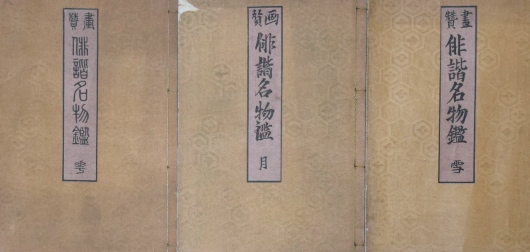 畫賛
俳諧名物鑑
雪
画賛
俳諧名物鑑
月
畫賛
俳諧名物鑑
花